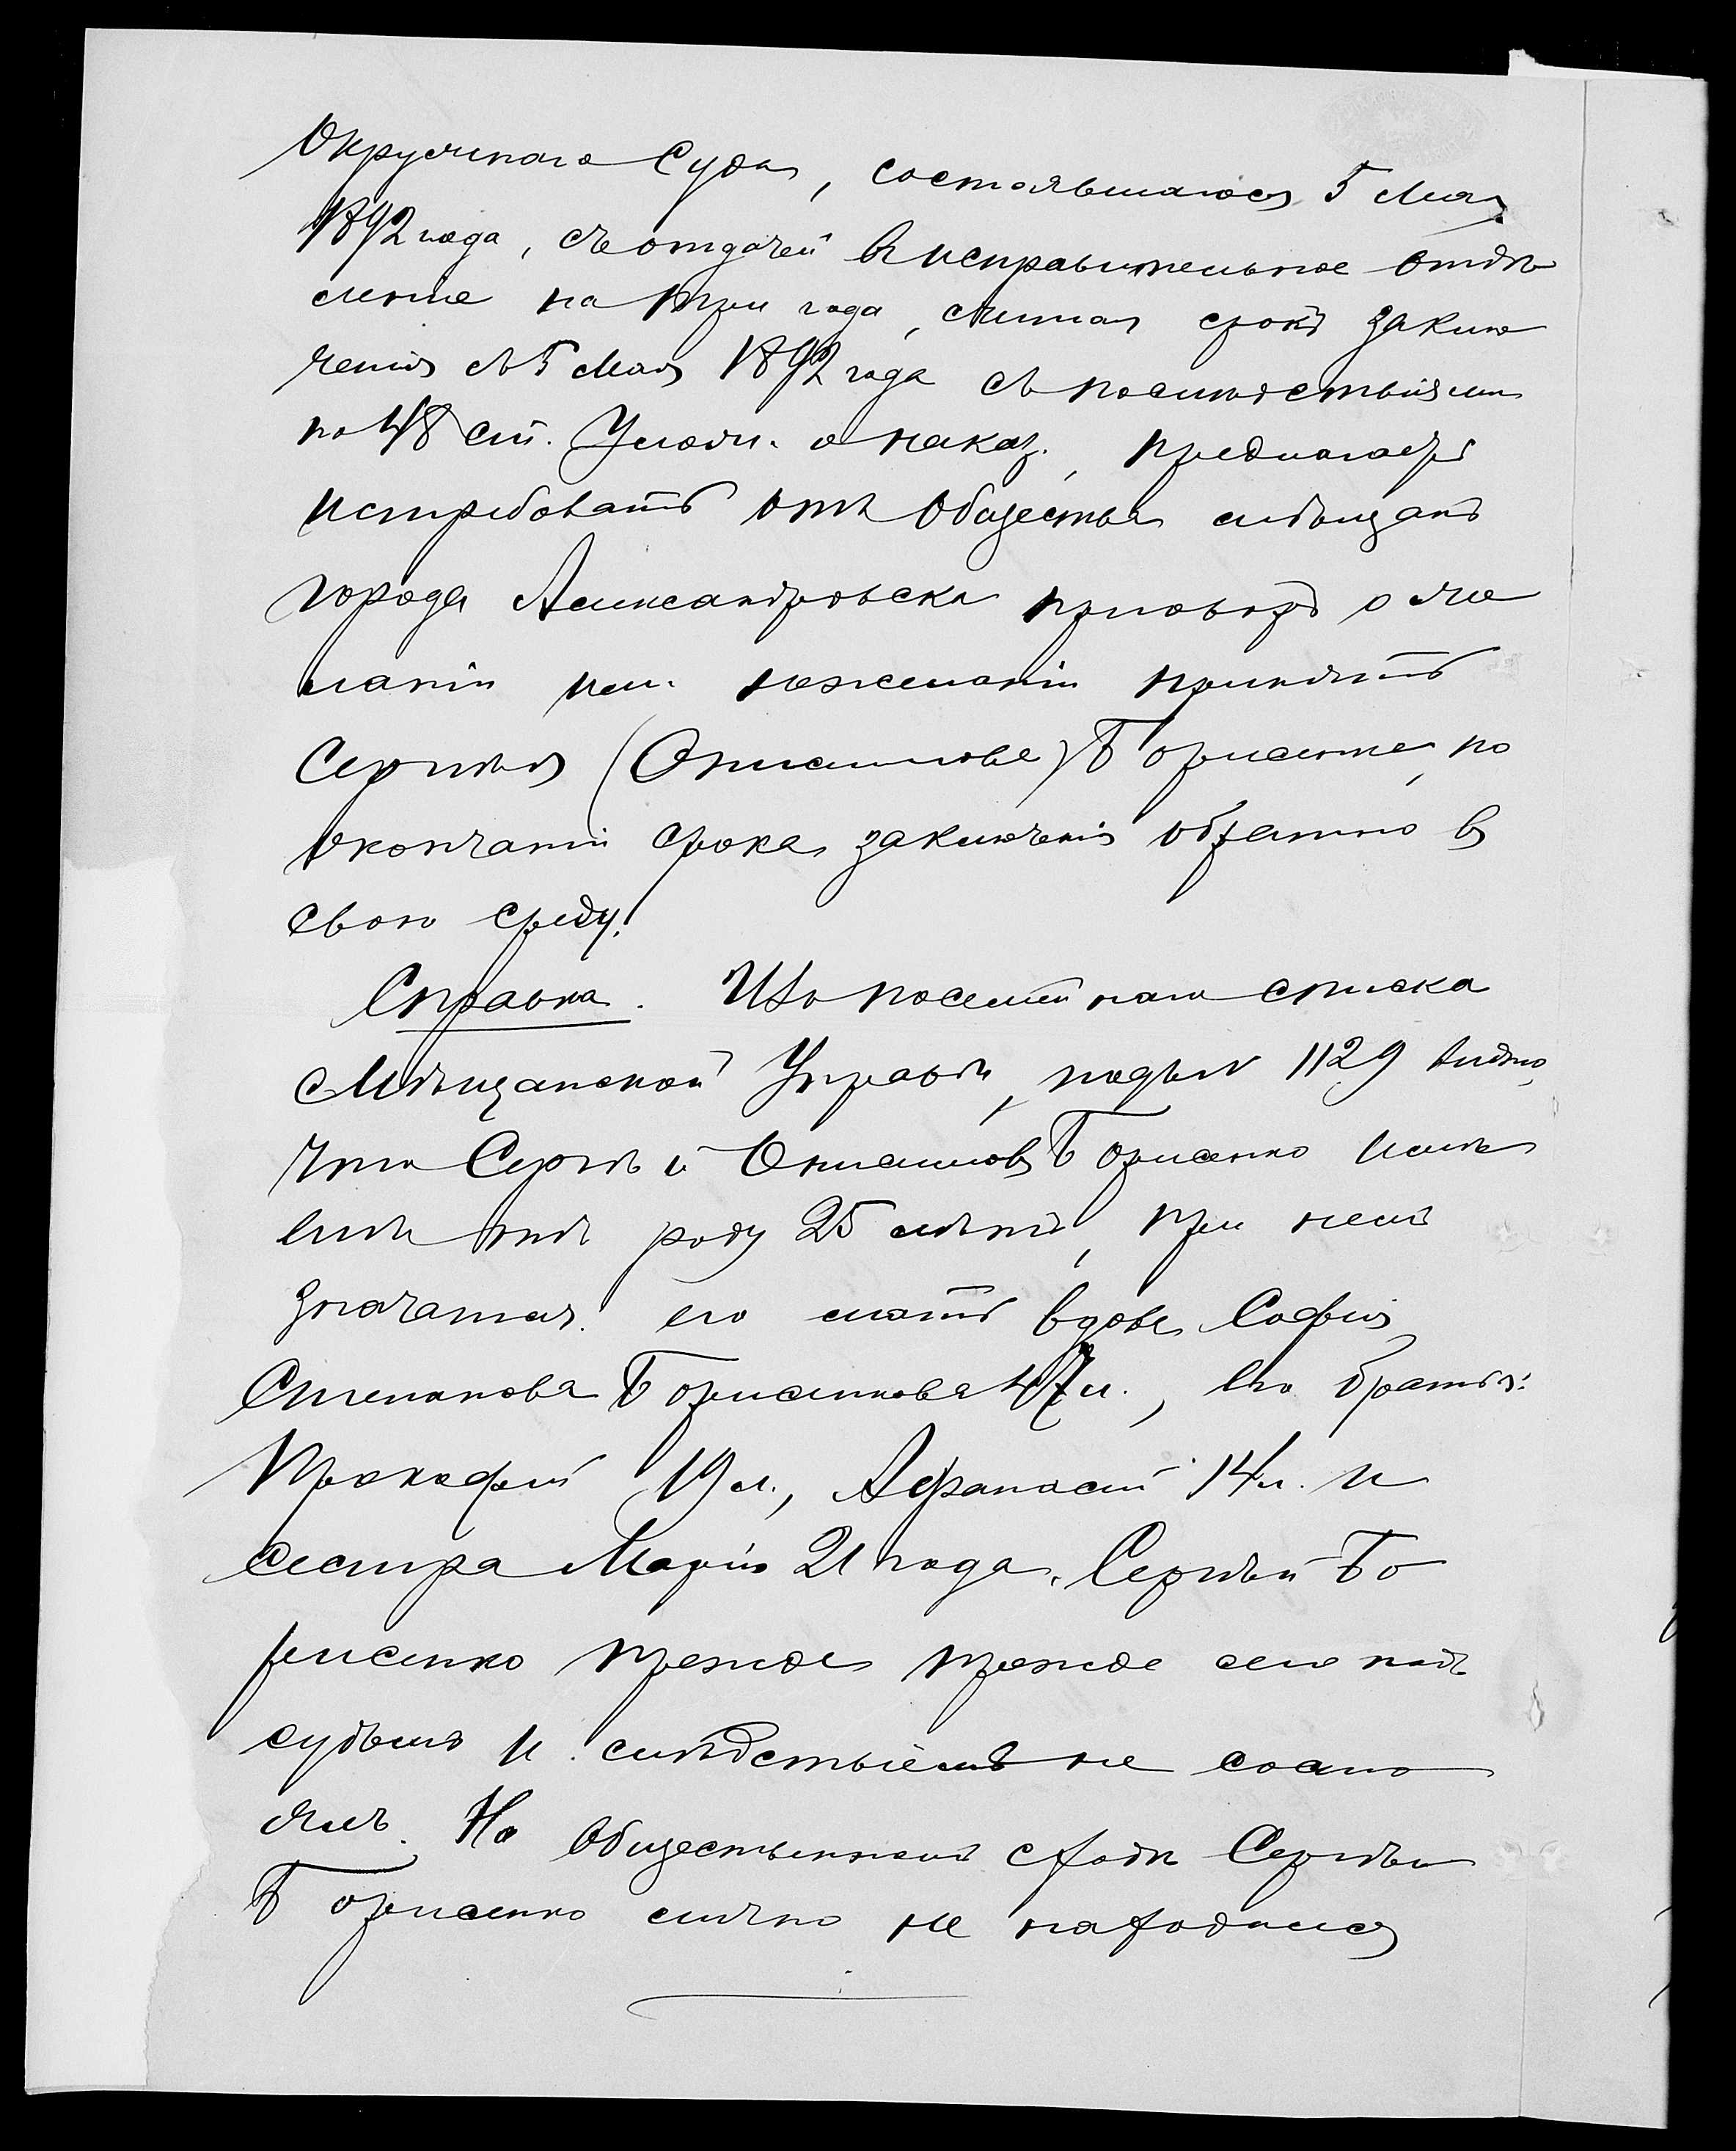 Окружнаго Суда, состоявшагося 5 Мая
1892 года, съ отдачей въ исправительное отдѣ
леніе на три года, считая срокъ заклю
ченія съ 5 Мая 1892 года съ послѣдствіями
по 48 ст. Улож. о наказ., предлагаетъ
истребовать отъ Общества мѣщанъ
города Александровска приговоръ о же
ланіи или нежеланіи принять
Сергѣя (Онисимова) Борисенко, по
окончаніи срока заключенія обратно в
свою среду.
Справка. Изъ посемейнаго списка
Мѣщанской Управы, подъ № 1129 видно,
что Сергѣй Онисимовъ Борисенко имѣ
етъ отъ роду 25 лѣтъ, при немъ
значатся: его мать вдова Софія
Степанова Борисенкова 47 л., его братья:
Прокофій 19 л., Афанасій 14 л. и
сестра Марія 21 года. Сергѣй Бо
рисенко прежде прежде сего подъ
судомъ и слѣдствіемъ не состо
ялъ. На Общественномъ сходѣ Сергѣй
Борисенко лично не находился